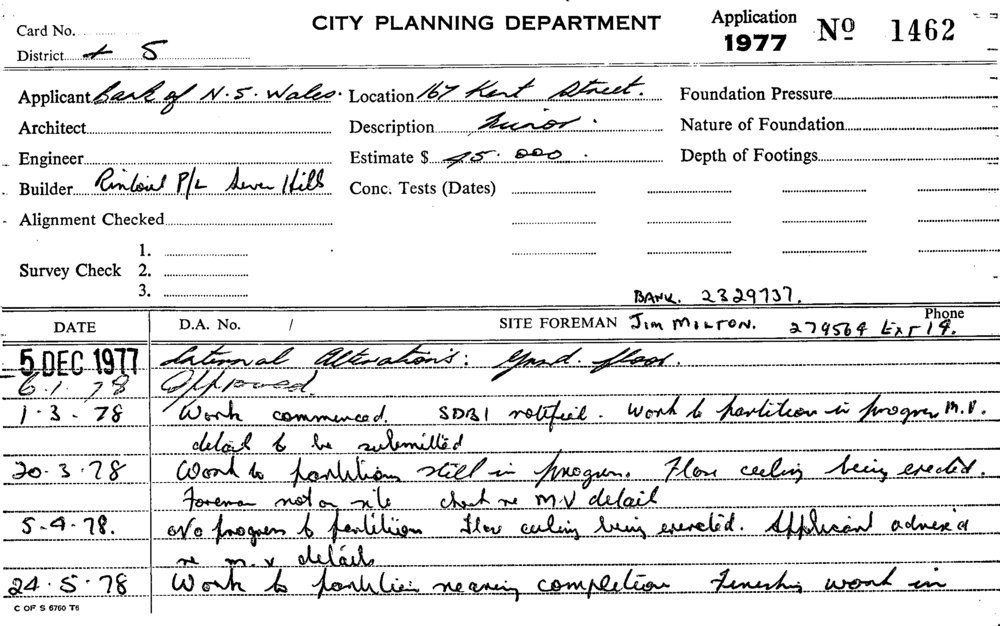 Card No. CITY PLANNING DEPARTMENT Application 1977 Nº 1462
District 5
Applicant Bank of N.S. Wales. Location 167 Kent Street. Foundation Pressure
Architect Description Minor. Nature of Foundation
Engineer Estimate $ 000. Depth of Footings
Builder P/L Seven Hills Conc. Tests (Dates)
Alignment Checked
1.
Survey Check 2.
3.
BANK. 2329737.
DATE D.A. No. / SITE FOREMAN JIM MILTON. Phone 279564 EXT 19.
5 DEC 1977 Internal Alterations: Grnd. floor.
6.1.78 Approved.
1.3.78 Work commenced. SDBI notified. Work to partition in progress M.V.
details to be submitted
20.3.78 Work to partitions still in progress. Flow ceiling being erected.
Foreman not on site check re M.V detail
5.4.78. No progress to partitions Flow ceiling being erected. Applicant advised
re m.v details
24.5.78 Work to partition nearing completion Finishing work in
C OF S 6760 T6